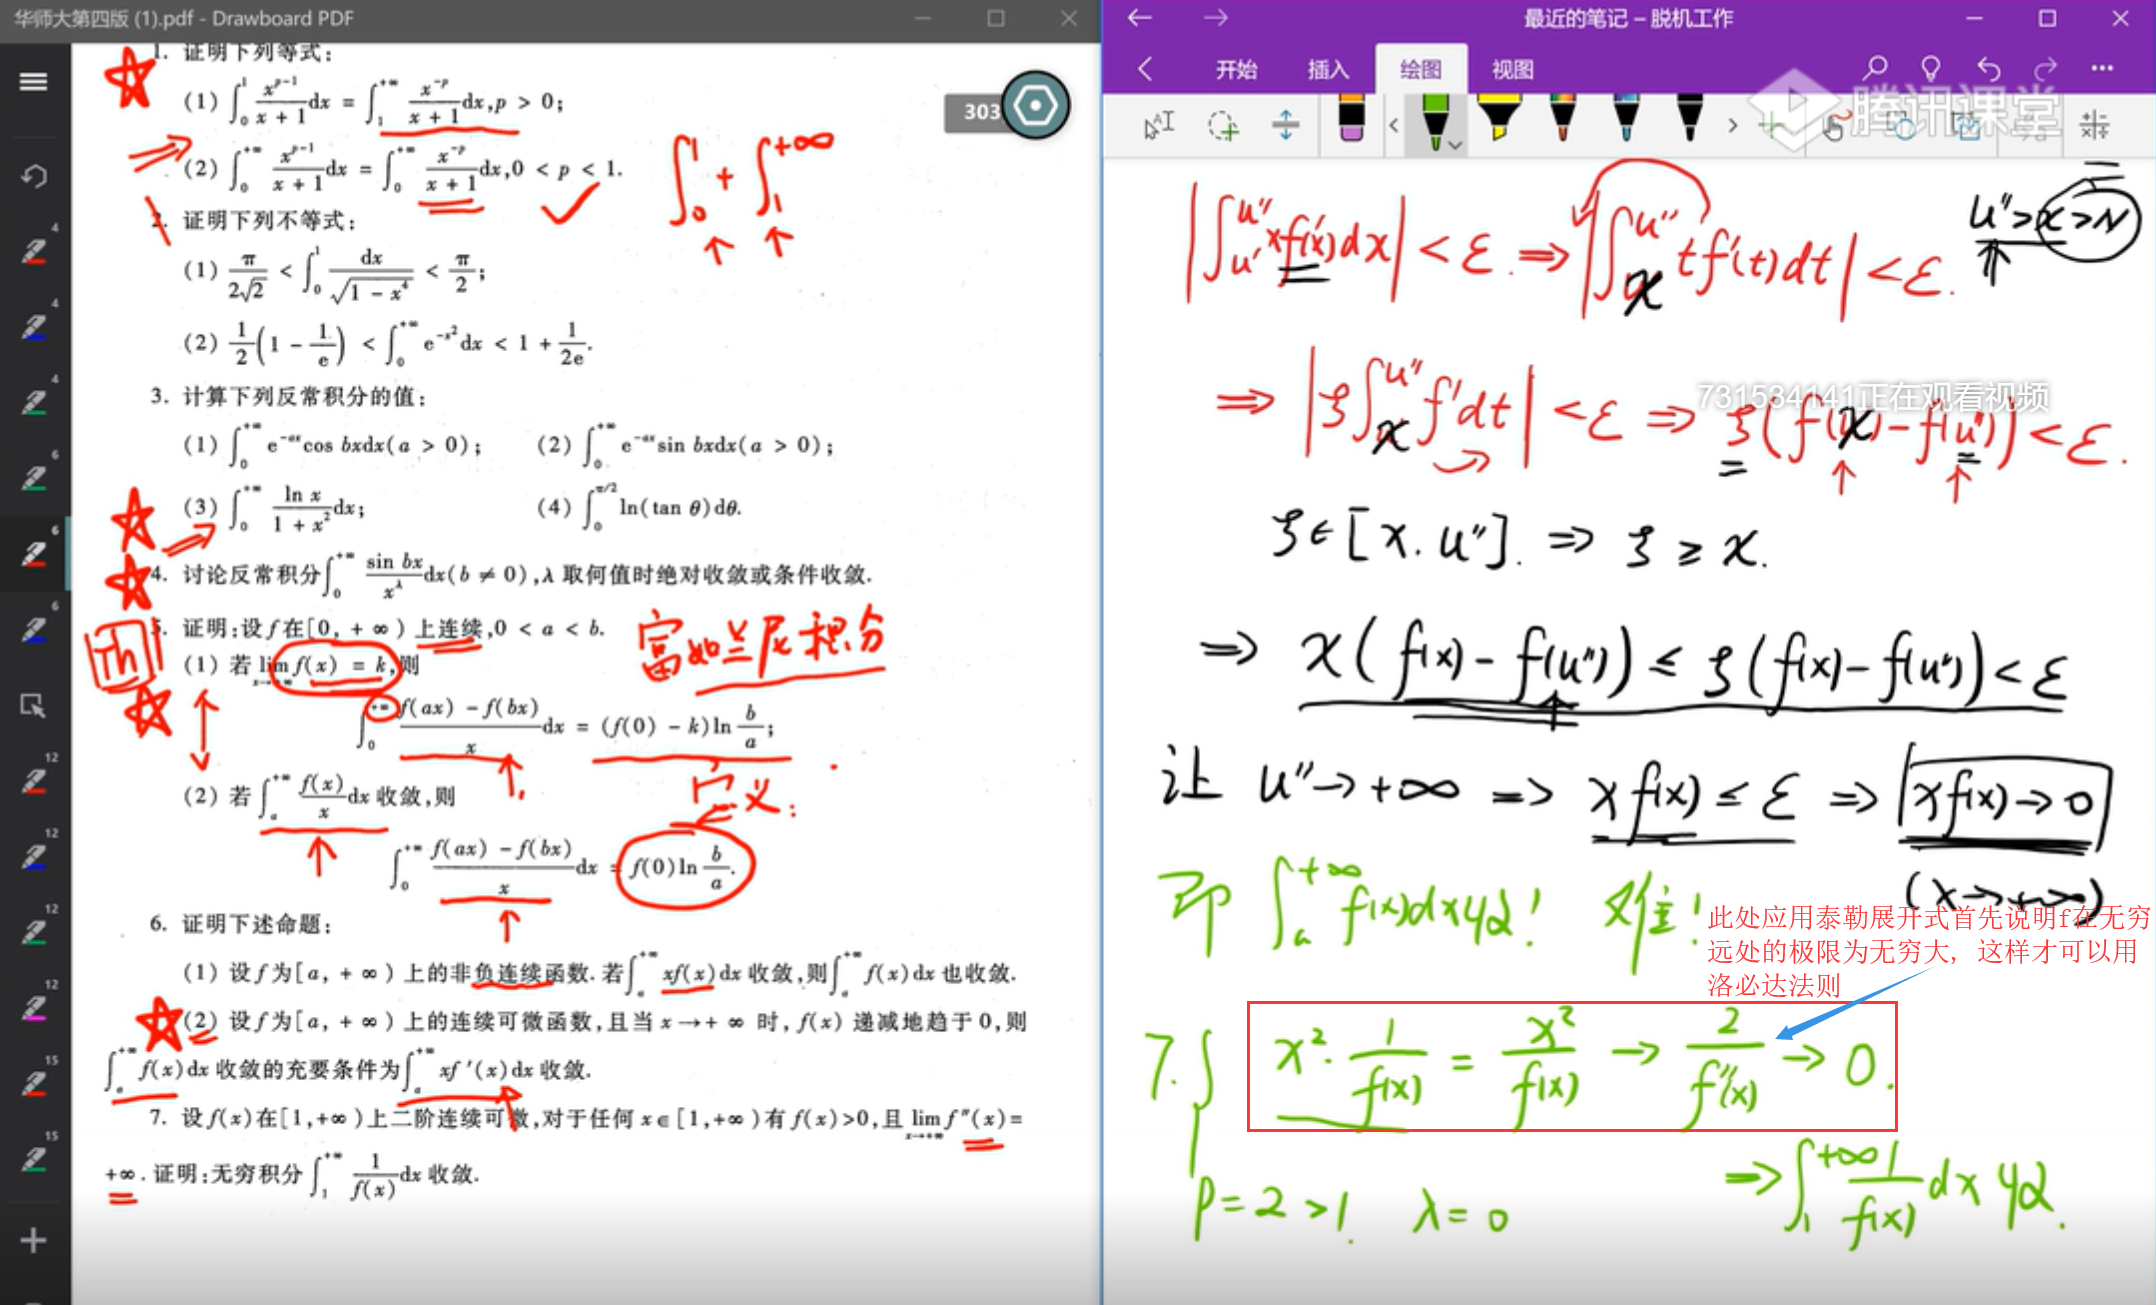 华师大第四版 (1).pdf - Drawboard PDF
1. 证明下列等式:
(1) ∫₀¹ x^{p-1}/(x + 1) dx = ∫₁^{+∞} x^{-p}/(x + 1) dx, p > 0;
303
(2) ∫₀^{+∞} x^{p-1}/(x + 1) dx = ∫₀^{+∞} x^{-p}/(x + 1) dx, 0 < p < 1.
∫₀¹ + ∫₁^{+∞}
2. 证明下列不等式:
(1) π/(2√2) < ∫₀¹ dx/√(1 - x⁴) < π/2;
(2) 1/2 (1 - 1/e) < ∫₀^{+∞} e^{-x²} dx < 1 + 1/(2e).
3. 计算下列反常积分的值:
(1) ∫₀^{+∞} e^{-ax} cos bxdx(a > 0); (2) ∫₀^{+∞} e^{-ax} sin bxdx(a > 0);
(3) ∫₀^{+∞} ln x/(1 + x²) dx; (4) ∫₀^{π/2} ln(tan θ)dθ.
4. 讨论反常积分∫₀^{+∞} sin bx/x^λ dx(b ≠ 0), λ 取何值时绝对收敛或条件收敛.
Th
5. 证明:设 f 在[0, + ∞) 上连续, 0 < a < b.
富如兰尼积分
(1) 若 lim_{x→+∞} f(x) = k, 则
∫₀^{+∞} (f(ax) - f(bx))/x dx = (f(0) - k)ln b/a;
(2) 若 ∫ₐ^{+∞} f(x)/x dx 收敛, 则
义:
∫₀^{+∞} (f(ax) - f(bx))/x dx = f(0)ln b/a.
6. 证明下述命题:
(1) 设 f 为[a, + ∞) 上的非负连续函数. 若∫ₐ^{+∞} xf(x)dx 收敛, 则∫ₐ^{+∞} f(x)dx 也收敛.
(2) 设 f 为[a, + ∞) 上的连续可微函数, 且当 x →+ ∞ 时, f(x) 递减地趋于 0, 则
∫ₐ^{+∞} f(x)dx 收敛的充要条件为∫ₐ^{+∞} xf′(x)dx 收敛.
7. 设 f(x)在[1,+∞)上二阶连续可微, 对于任何 x∈[1,+∞)有 f(x)>0, 且 lim_{x→+∞} f″(x)=
+∞. 证明:无穷积分∫₁^{+∞} 1/f(x) dx 收敛.
4
4
4
6
6
6
12
12
12
12
15
15
最近的笔记 – 脱机工作
开始 插入 绘图 视图
腾讯课堂
|∫_{u'}^{u''} xf'(x)dx| < ε. ⇒ |∫_x^{u''} tf'(t)dt| < ε.
u''>x>N
731534141正在观看视频
⇒ |ξ∫_x^{u''} f'dt| < ε ⇒ ξ(f(x) - f(u'')) < ε.
ξ∈[x. u'']. ⇒ ξ ≥ x.
⇒ x(f(x) - f(u'')) ≤ ξ(f(x) - f(u'')) < ε
让 u''→+∞ ⇒ xf(x) ≤ ε ⇒ xf(x)→0
(x→+∞)
即 ∫ₐ^{+∞} f(x)dx收! 难!
此处应用泰勒展开式首先说明f在无穷
远处的极限为无穷大, 这样才可以用
洛必达法则
7. ∫ x²· 1/f(x) = x²/f(x) → 2/f''(x) → 0.
p=2>1. λ=0
⇒ ∫₁^{+∞} 1/f(x) dx 收.